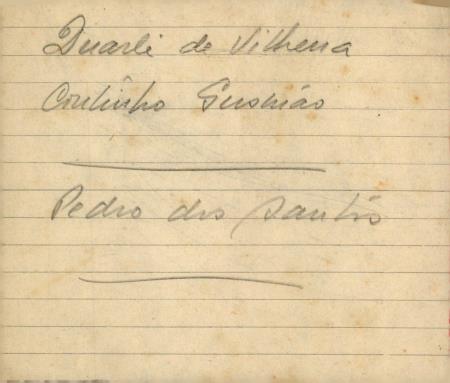 Duarte de Vilhena
Coutinho Gusmão
Pedro dos Santos